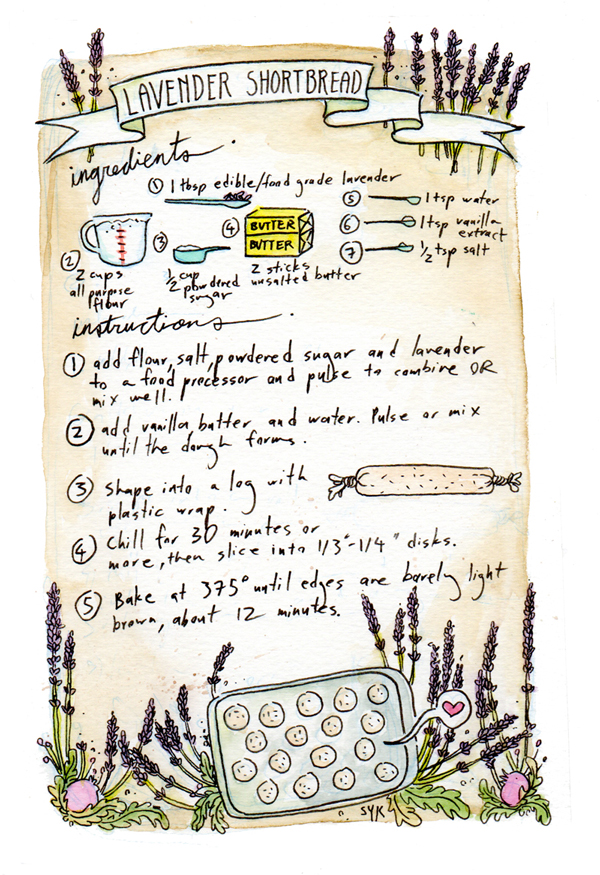 LAVENDER SHORTBREAD
ingredients
① 1 tbsp edible/food grade lavender
② 2 cups
all purpose
flour
③ 1/2 cup
powdered
sugar
④ BUTTER
BUTTER
2 sticks
unsalted butter
⑤ 1 tsp water
⑥ 1 tsp vanilla
extract
⑦ 1/2 tsp salt
instructions
① add flour, salt, powdered sugar and lavender
to a food processor and pulse to combine OR
mix well.
② add vanilla, butter and water. Pulse or mix
until the dough forms.
③ Shape into a log with
plastic wrap.
④ Chill for 30 minutes or
more, then slice into 1/3"-1/4" disks.
⑤ Bake at 375° until edges are barely light
brown, about 12 minutes.
SYK